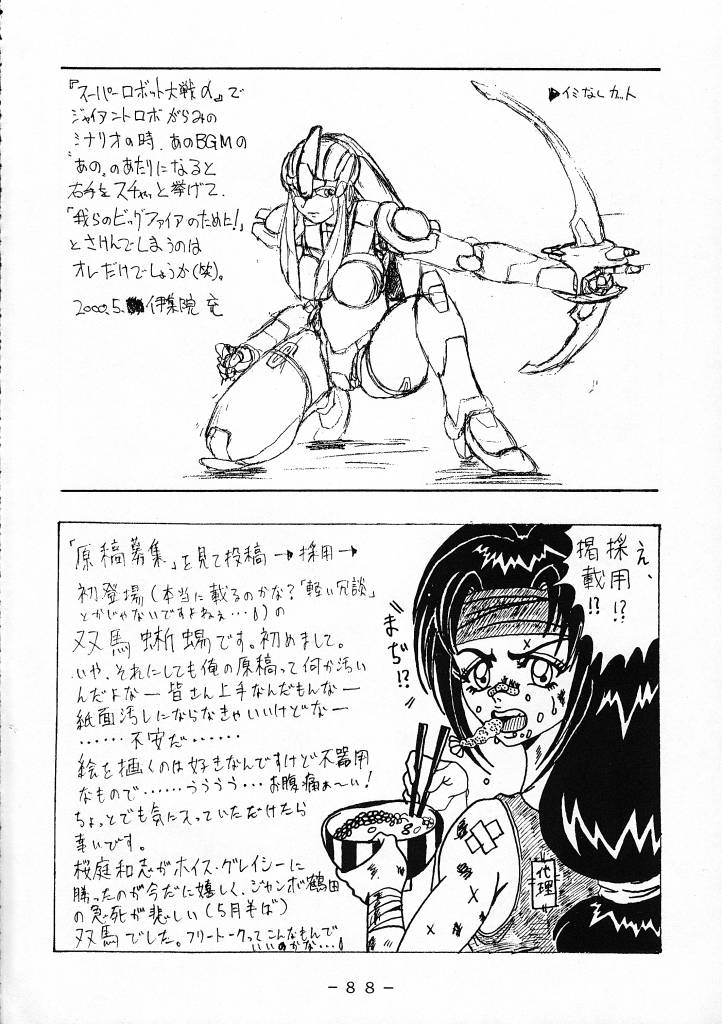 『スーパーロボット大戦α』で
ジャイアントロボがらみの
シナリオの時、あのBGMの
"あの"のあたりになると
右手をスチャッと挙げて、
「我らのビッグファイアのために!」
とさけんでしまうのは
オレだけでしょうか(笑)。
2000.5. 伊集院 充
▶イミなしカット
「原稿募集」を見て投稿→採用→
初登場(本当に載るのかな?「軽い冗談」
とかじゃないですよねぇ…)の
双馬蜥蜴です。初めまして。
いや、それにしても俺の原稿って何か汚い
んだよなー皆さん上手なんだもんなー
紙面汚しにならなきゃいいけどなー
……不安だ……
絵を描くのは好きなんですけど不器用
なもので……うううう…お腹痛ぁ〜い!
ちょっとでも気に入っていただけたら
幸いです。
桜庭和志がホイス・グレイシーに
勝ったのが今だに嬉しく、ジャンボ鶴田
の急死が悲しい(5月半ば)
双馬でした。フリートークってこんなもんで
いいのかな…
え、
採用!?
掲載!?
まぢ!?
代理
-88-